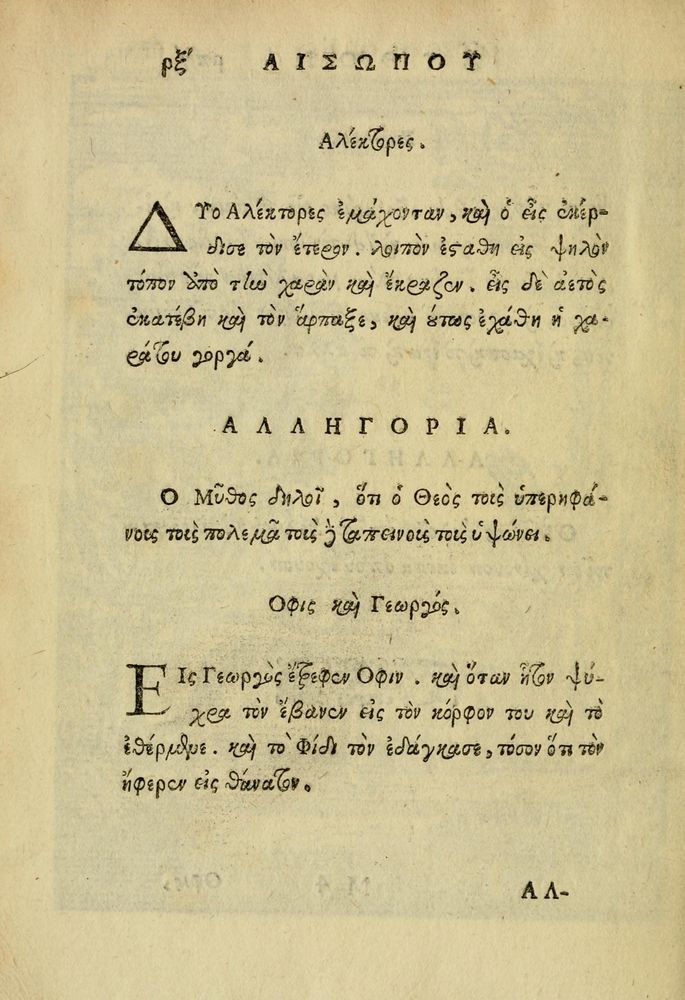 ρξʹ ΑΙΣΩΠΟΥ
Αλέκτορες.
ΔΥο Αλέκτορες ἐμάχονταν, καὶ ὁ εἷς ἐκέρ-
δισε τὸν ἕτερον. λοιπὸν ἐςάθη εἰς ψηλὸν
τόπον ἀπὸ τὴν χαρὰν καὶ ἔκραζεν. εἷς δὲ ἀετὸς
ἐκατέβη καὶ τὸν ἅρπαξε, καὶ ὅτως ἐχάθη ἡ χα-
ράτου γοργά.
ΑΛΛΗΓΟΡΙΑ.
Ο Μῦθος δηλοῖ, ὅτι ὁ Θεὸς τοῖς ὑπερηφά-
νοις τοὶς πολεμᾶ τοὶς ὃ ταπεινοὶς τοὶς ὑψώνει.
Οφις καὶ Γεωργός.
ΕΙς Γεωργὸς ἔτρεφεν Οφιν. καὶ ὅταν ἦτον ψύ-
χρα τὸν ἔβανεν εἰς τὸν κόρφον του καὶ τὸ
ἐθέρμαινε. καὶ τὸ Φίδι τὸν ἐδάγκασε, τόσον ὅτι τὸν
ἤφερεν εἰς θάνατον.
ΑΛ-